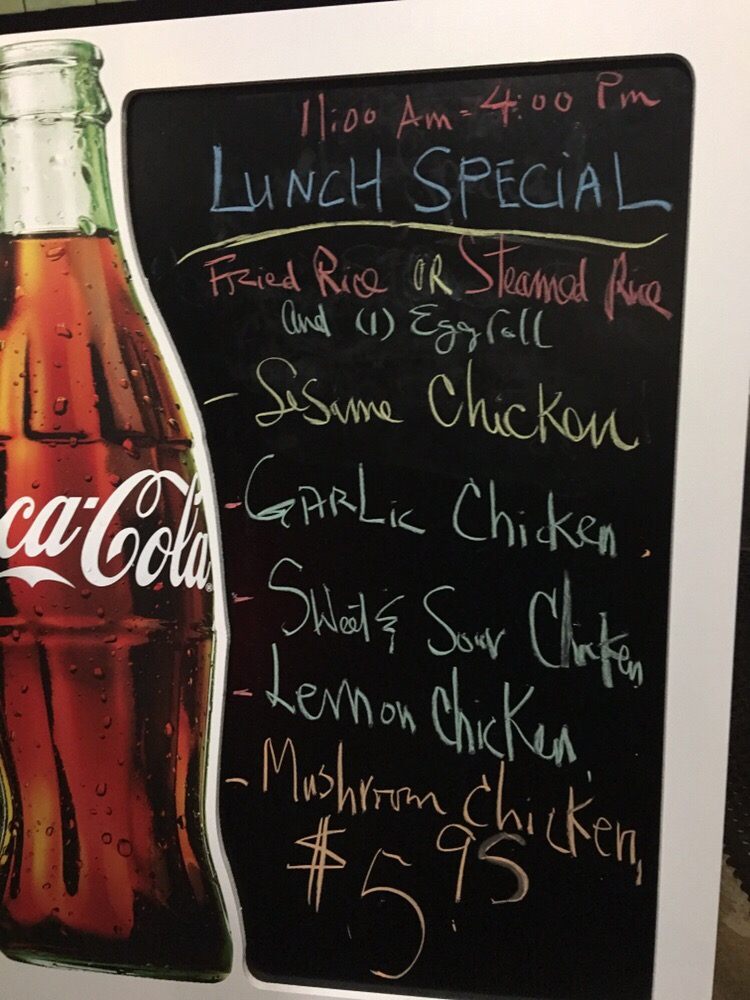 11:00 Am - 4:00 Pm
LUNCH SPECiAL
Fried Rice OR Steamed Rice
and (1) Egg roll
- Sesame Chicken
- GARLic Chicken
- Sweet & Sour Chicken
- Lemon Chicken
- Mushroom Chicken
$5.95
ca-Cola